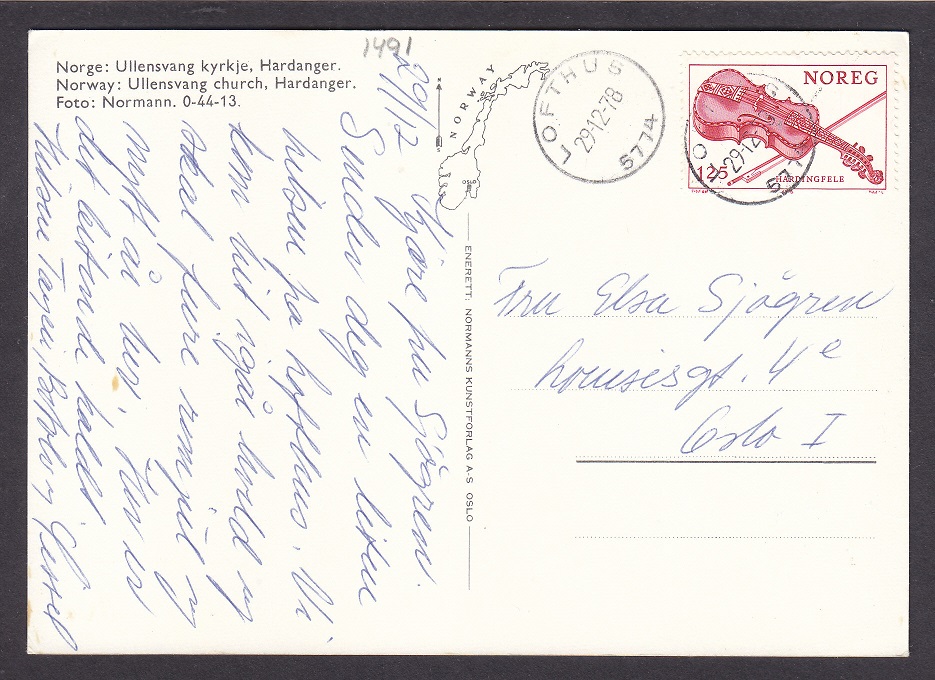 1491
Norge: Ullensvang kyrkje, Hardanger.
Norway: Ullensvang church, Hardanger.
Foto: Normann. 0-44-13.
N
S
NORWAY
OSLO
LOFTHUS
29-12-78
5774
NOREG
125
HARDINGFELE
LO
29-12
577
ENERETT: NORMANNS KUNSTFORLAG A-S OSLO
29/12 Kjære fru Sjøgren.
Sender deg en liten
hilsen fra Lofthus. Vi
kom hit igår kveld og
skal feire romjul og
nytt år her. Her er
det bitende kaldt.
Hilsen
og Sissel
Fru Elsa Sjøgren
Louisesgt. 4e
Oslo I